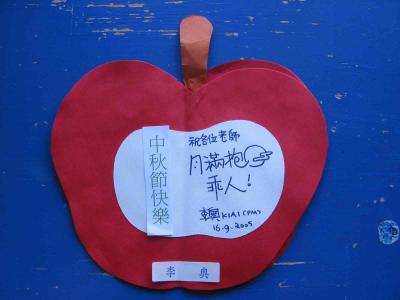 中秋節快樂
祝各位老師
月滿抱
乖人!
K1A1(PM)
16.9.2005
李 典